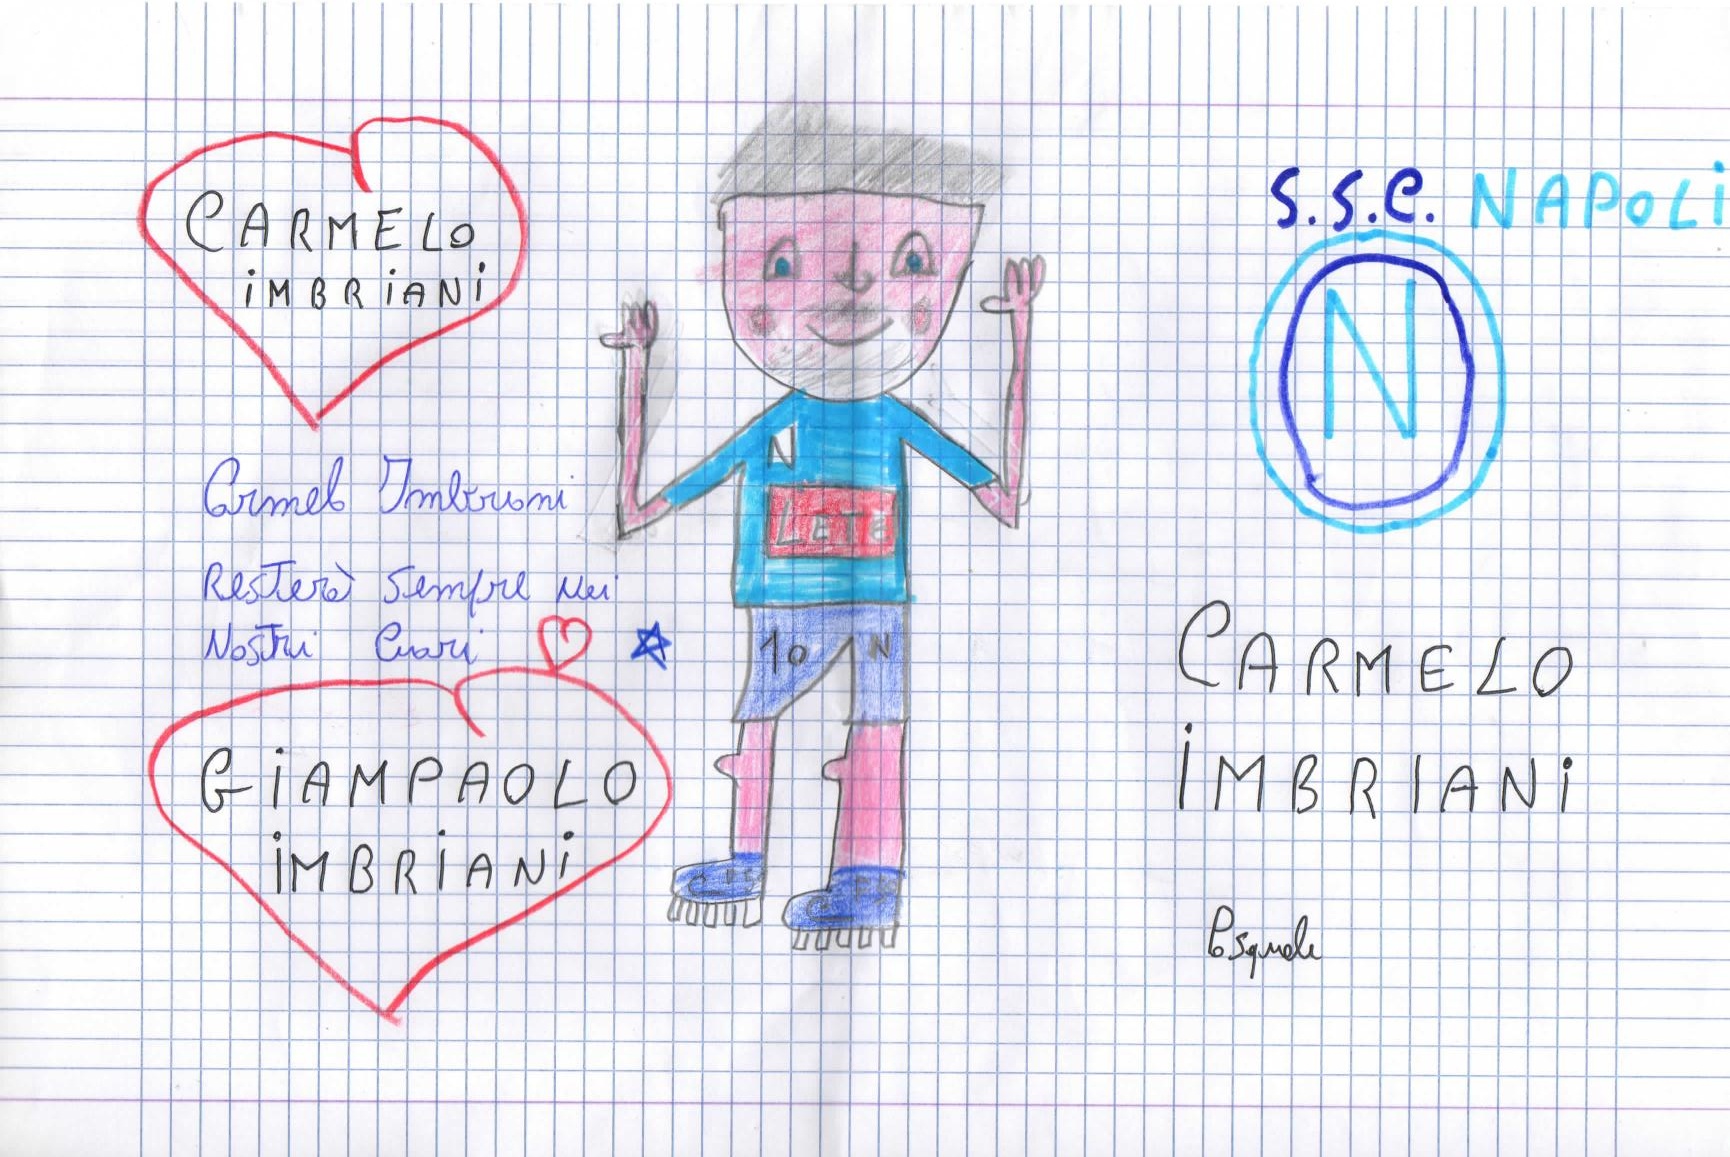 CARMELO
iMBRiANi
Carmelo Imbriani
Resterà sempre nei
Nostri Cuori
GiAMPAOLO
iMBRiANi
N
LETE
10 N
S.S.C. NAPOLi
N
CARMELO
iMBRIANi
Pasquale